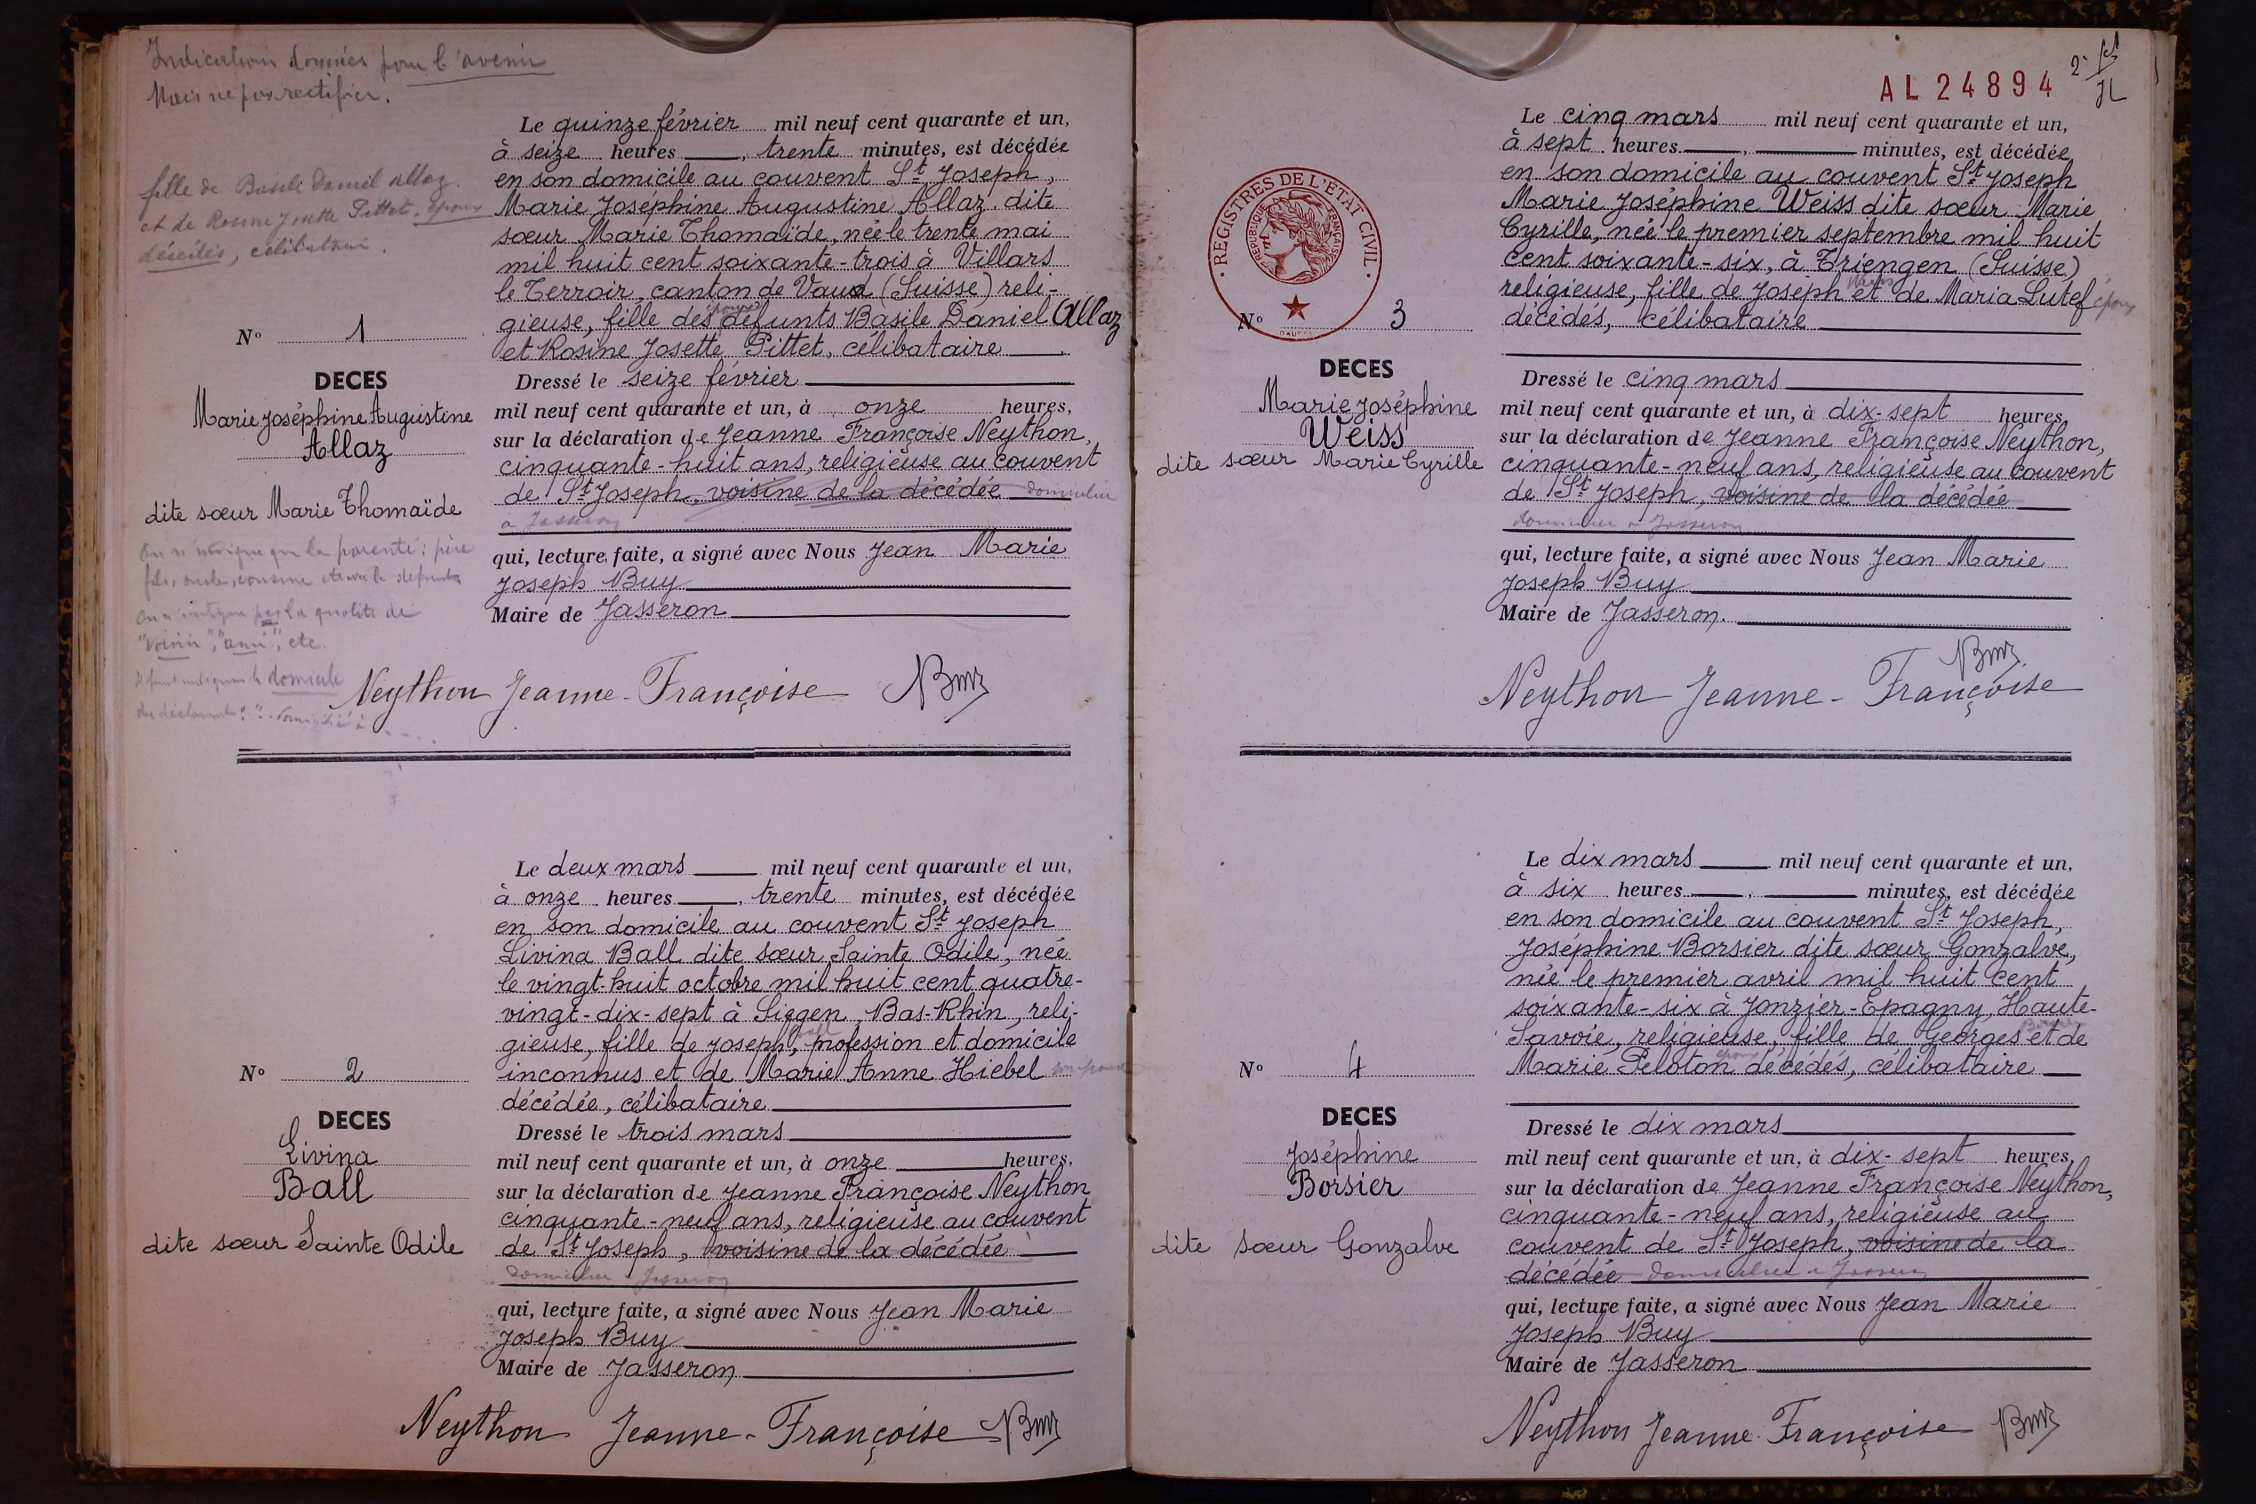 Indications données pour l'avenir
Mais ne pas rectifier.
fille de Basile Daniel Allaz
et de Rosine Josette Pittet, époux
décédés, célibataire.
N° 1
DECES
Marie Joséphine Augustine
Allaz
dite sœur Marie Thomaïde
On n'indique que la parenté : père
fils, oncle, cousine
On n'indique pas la qualité de
"voisin", "ami", etc.
Il faut indiquer le domicile
du déclarant : domicilié à
Le quinze février mil neuf cent quarante et un,
à seize heures, trente minutes, est décédée
en son domicile au couvent St Joseph,
Marie Josephine Augustine Allaz dite
sœur Marie Thomaïde, née le trente mai
mil huit cent soixante-trois à Villars
le Terroir, canton de Vaud (Suisse) reli-
gieuse, fille des époux défunts Basile Daniel Allaz
et Rosine Josette Pittet, célibataire
Dressé le seize février
mil neuf cent quarante et un, à onze heures,
sur la déclaration de Jeanne Françoise Neython,
cinquante-huit ans, religieuse au couvent
de St Joseph, voisine de la décédée domiciliée
à Jasseron
qui, lecture faite, a signé avec Nous Jean Marie
Joseph Buy
Maire de Jasseron
Neython Jeanne-Françoise Buy
N° 2
DECES
Livina
Ball
dite sœur Sainte Odile
Le deux mars mil neuf cent quarante et un,
à onze heures, trente minutes, est décédée
en son domicile au couvent St Joseph
Livina Ball dite sœur Sainte Odile, née
le vingt-huit octobre mil huit cent quatre-
vingt-dix-sept à Siegen, Bas-Rhin, reli-
gieuse, fille de Joseph Ball, profession et domicile
inconnus et de Marie Anne Hiebel son épouse
décédée, célibataire
Dressé le trois mars
mil neuf cent quarante et un, à onze heures,
sur la déclaration de Jeanne Françoise Neython
cinquante-neuf ans, religieuse au couvent
de St Joseph, voisine de la décédée
domiciliée à Jasseron
qui, lecture faite, a signé avec Nous Jean Marie
Joseph Buy
Maire de Jasseron
Neython Jeanne-Françoise Buy
AL 24894
2e
REGISTRES DE L'ETAT CIVIL
REPUBLIQUE FRANÇAISE
N° 3
DECES
Marie Joséphine
Weiss
dite sœur Marie Cyrille
Le cinq mars mil neuf cent quarante et un,
à sept heures, minutes, est décédée
en son domicile au couvent St Joseph
Marie Joséphine Weiss dite sœur Marie
Cyrille, née le premier septembre mil huit
cent soixante-six, à Triengen (Suisse)
religieuse, fille de Joseph Weiss et de Maria Lutef époux
décédés, célibataire
Dressé le cinq mars
mil neuf cent quarante et un, à dix-sept heures,
sur la déclaration de Jeanne Françoise Neython,
cinquante-neuf ans, religieuse au couvent
de St Joseph, voisine de la décédée
domiciliée à Jasseron
qui, lecture faite, a signé avec Nous Jean Marie
Joseph Buy
Maire de Jasseron.
Buy
Neython Jeanne-Françoise
N° 4
DECES
Joséphine
Borsier
dite sœur Gonzalve
Le dix mars mil neuf cent quarante et un,
à six heures, minutes, est décédée
en son domicile au couvent St Joseph,
Joséphine Borsier dite sœur Gonzalve,
née le premier avril mil huit cent
soixante-six à Jonzier-Epagny, Haute-
Savoie, religieuse, fille de Georges Borsier et de
Marie Peloton époux décédés, célibataire
Dressé le dix mars
mil neuf cent quarante et un, à dix-sept heures,
sur la déclaration de Jeanne Françoise Neython,
cinquante-neuf ans, religieuse au
couvent de St Joseph, voisine de la
décédée domiciliée à Jasseron
qui, lecture faite, a signé avec Nous Jean Marie
Joseph Buy
Maire de Jasseron
Neython Jeanne Françoise Buy